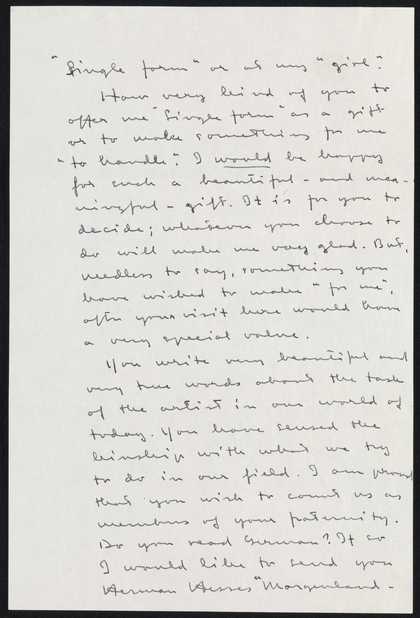 "Single form" or at my "girl".
How very kind of you to
offer me "Single form" as a gift
or to make something for me
"to handle". I would be happy
for such a beautiful - and mea-
ningful - gift. It is for you to
decide; whatever you choose to
do will make me very glad. But,
needless to say, something you
have wished to make "for me",
after your visit here would have
a very special value.
You write very beautiful and
very true words about the task
of the artist in our world of
today. You have sensed the
kinship with what we try
to do in our field. I am proud
that you wish to count us as
members of your fraternity.
Do you read German? If so
I would like to send you
Herman Hesses "Morgenland-